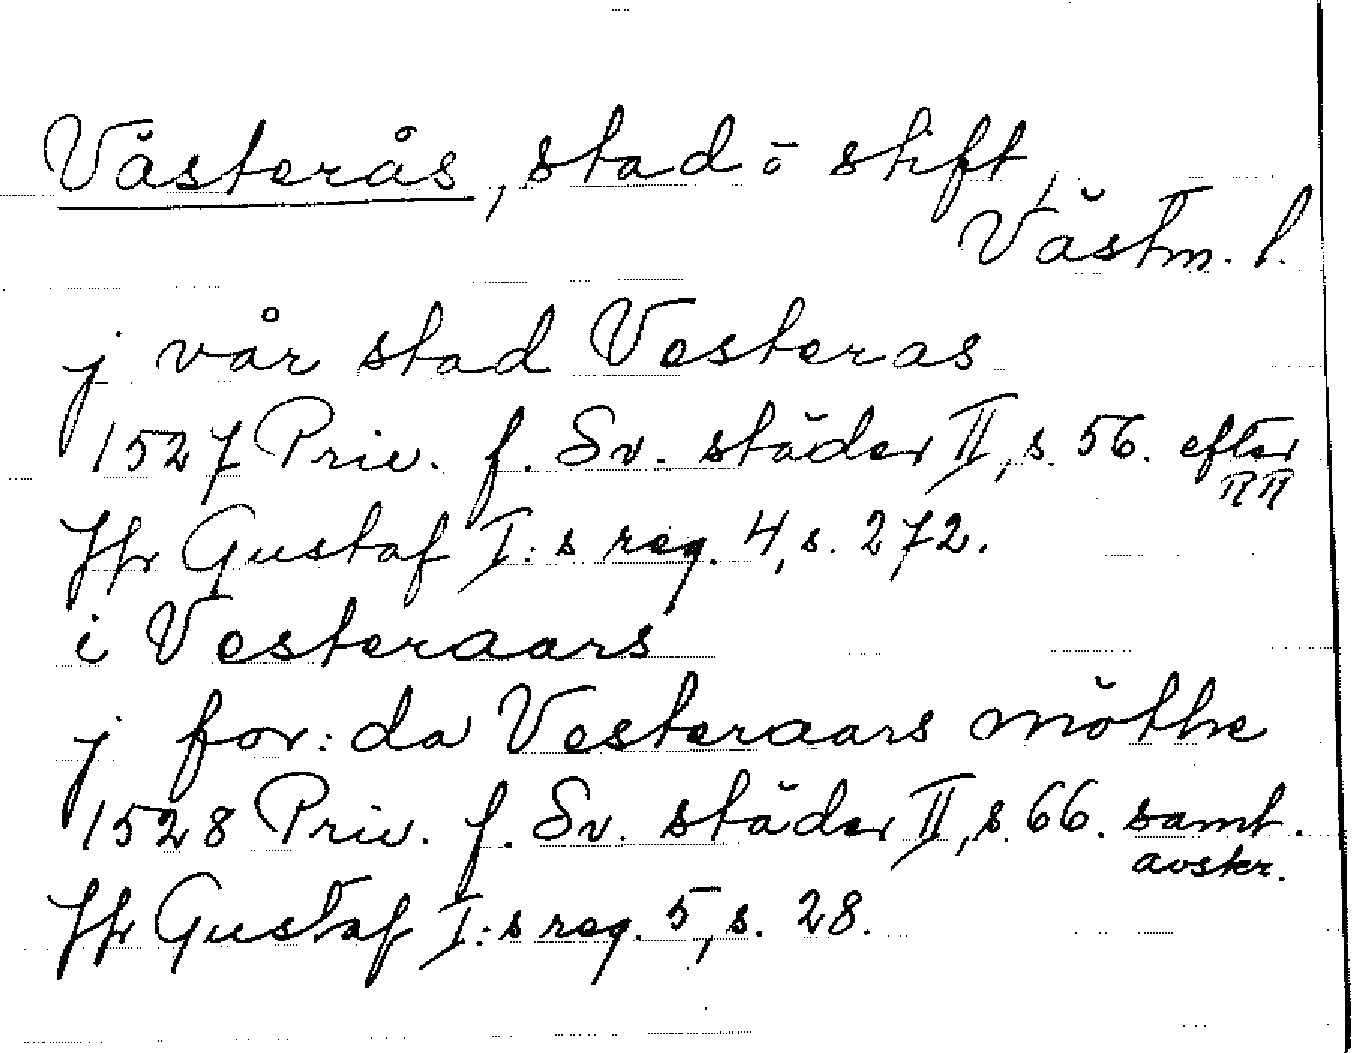 Västerås, stad o stift,
Västm. l.
j vår stad Vesteras
1527 Priv. f. Sv. städer II, s. 56. efter
RR
Jfr Gustaf I:s reg. 4, s. 272.
i Vesteraars
j for: da Vesteraars möthe
1528 Priv. f. Sv. städer II, s. 66. samt.
avskr.
Jfr Gustaf I:s reg. 5, s. 28.